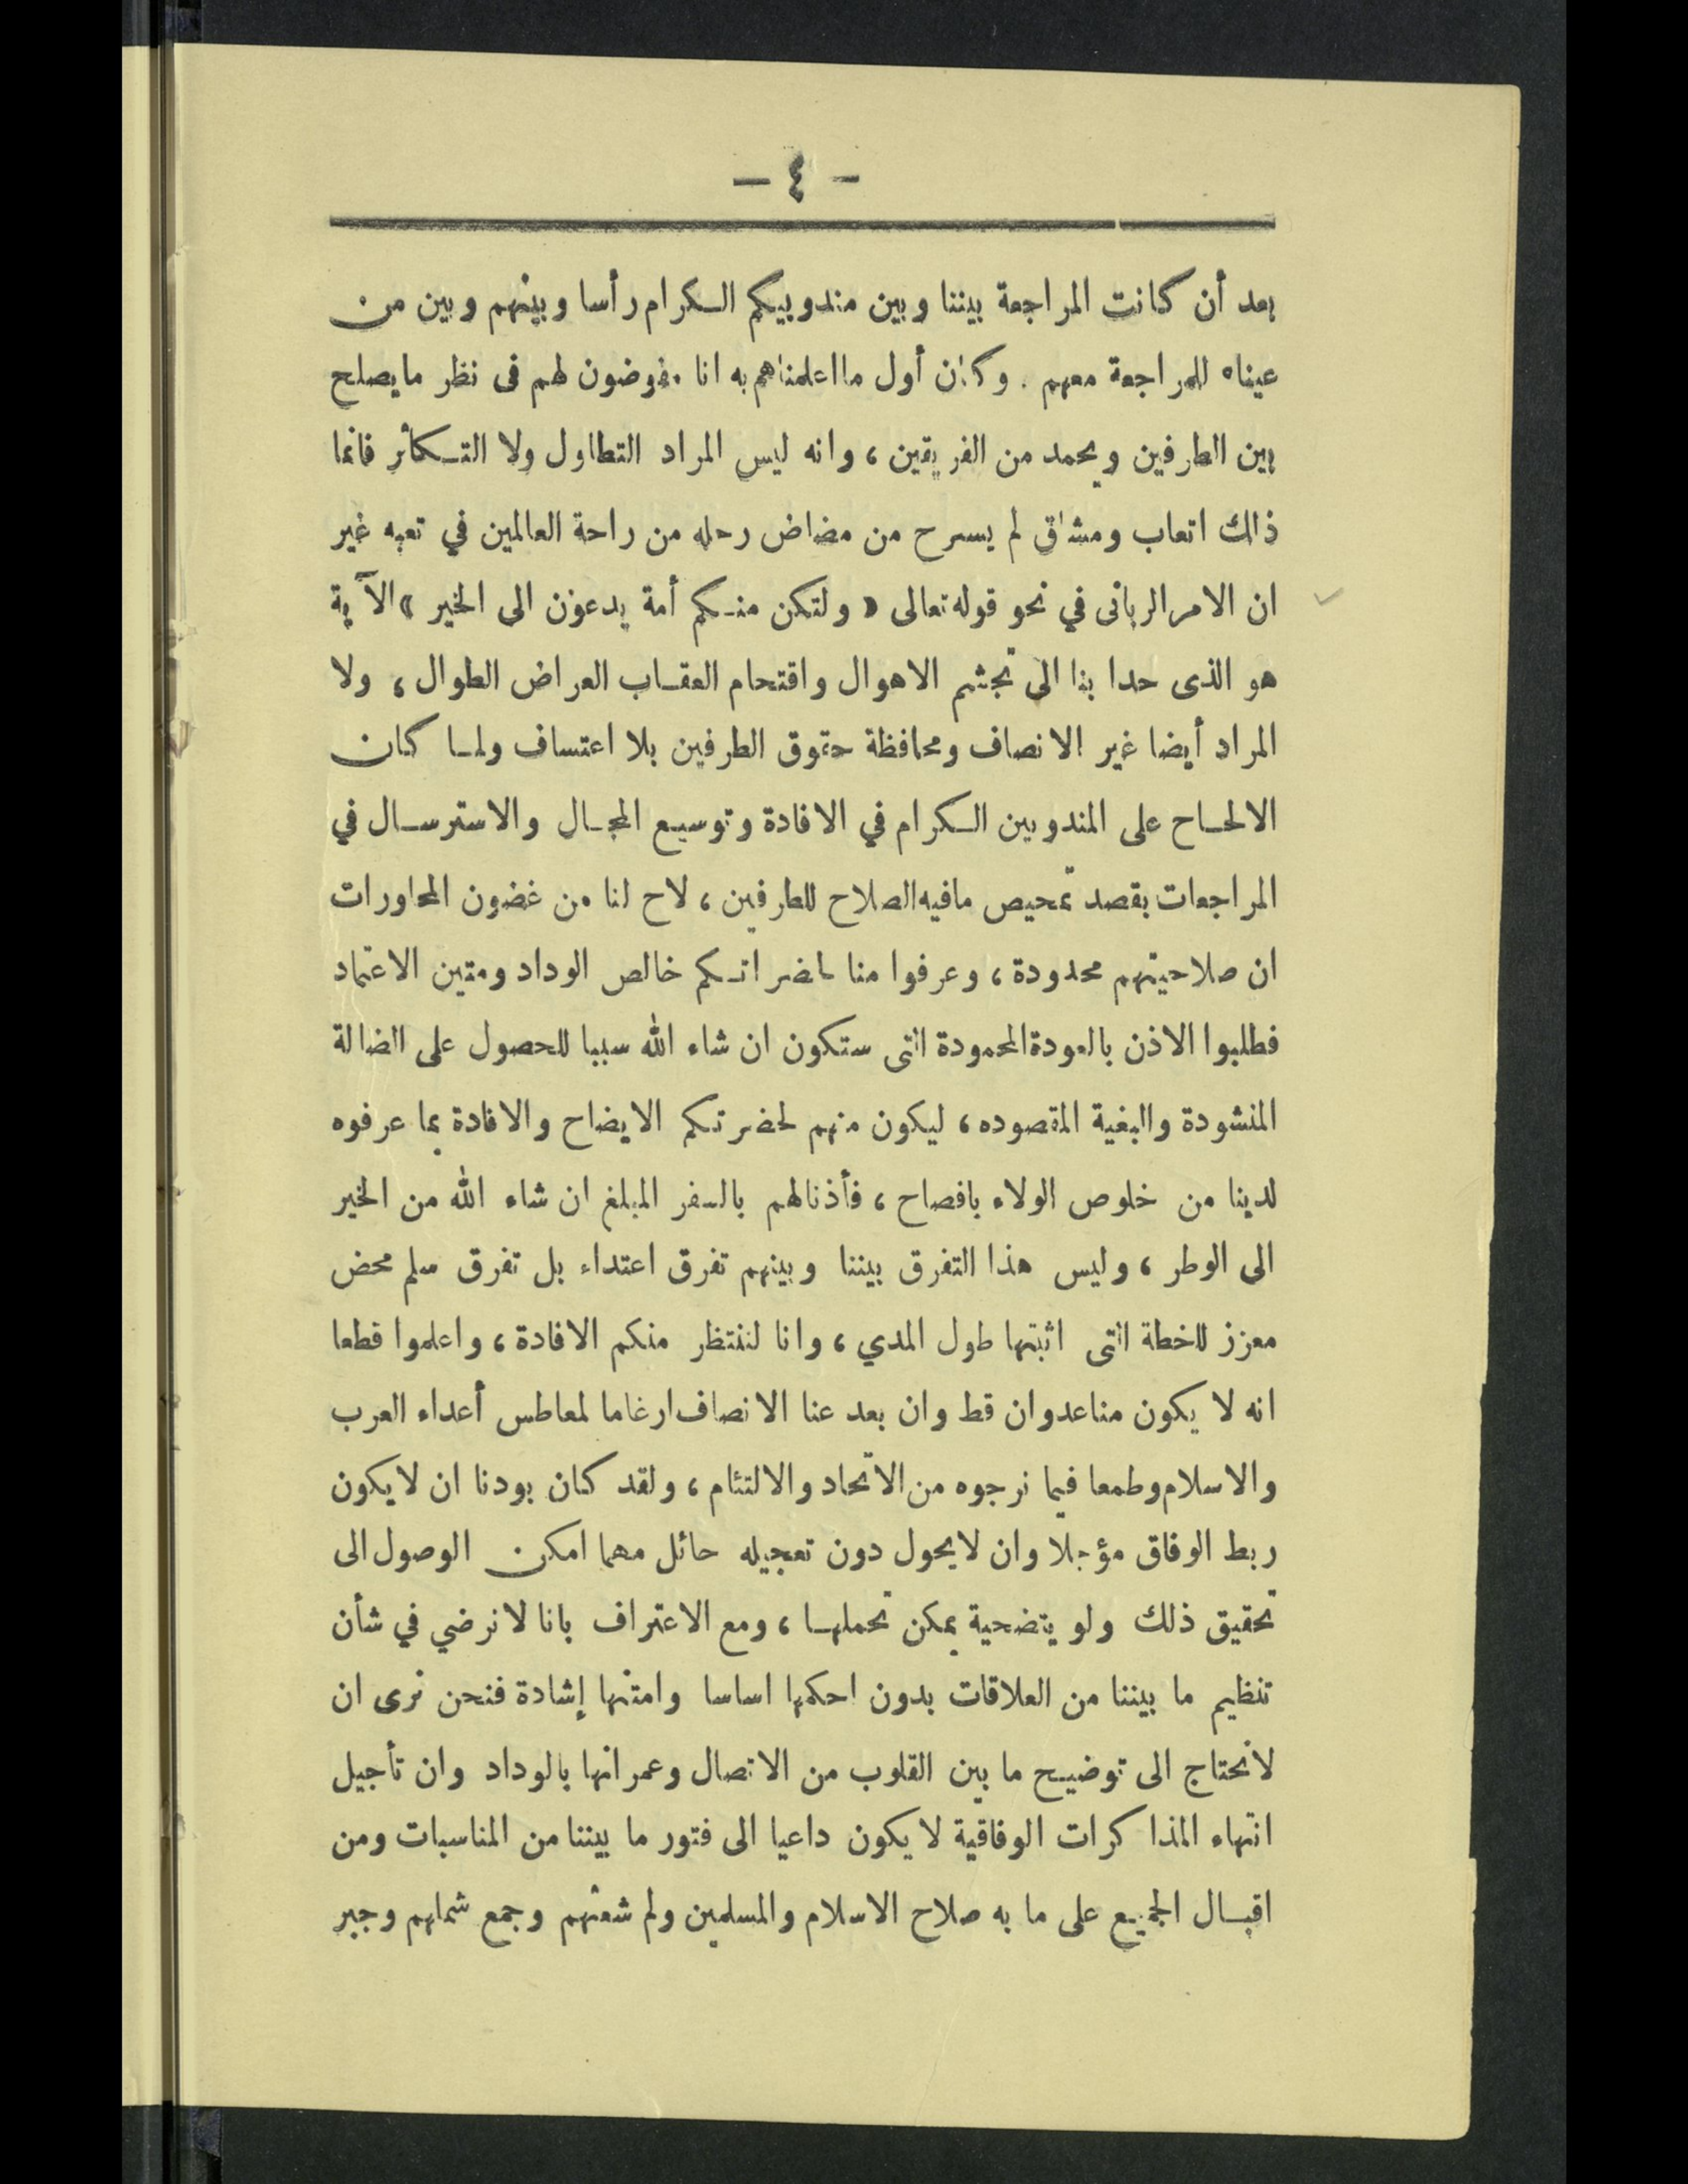 - ٤ -
بعد أن كانت المراجعة بيننا وبين مندوبيكم الكرام رأسا وبينهم وبين من
عيناه للمراجعة معهم . وكان أول ما اعلمناهم به انا مفوضون لهم فى نظر ما يصلح
بين الطرفين ويحمد من الفريقين ، وانه ليس المراد التطاول ولا التكاثر فانما
ذلك اتعاب ومشاق لم يسرح من مضاض رحله من راحة العالمين في تعبه غير
ان الامر الربانى في نحو قوله تعالى « ولتكن منكم أمة يدعون الى الخير » الآية
هو الذى حدا بنا الى تجشم الاهوال واقتحام العقاب العراض الطوال ، ولا
المراد أيضا غير الانصاف ومحافظة حقوق الطرفين بلا اعتساف ولما كان
الالحاح على المندوبين الكرام في الافادة وتوسيع المجال والاسترسال في
المراجعات بقصد تمحيص مافيه الصلاح للطرفين ، لاح لنا من غضون المحاورات
ان صلاحيتهم محدودة ، وعرفوا منا لحضراتكم خالص الوداد ومتين الاعتماد
فطلبوا الاذن بالعودة المحمودة التى ستكون ان شاء الله سببا للحصول على الضالة
المنشودة والبغية المقصوده ، ليكون منهم لحضرتكم الايضاح والافادة بما عرفوه
لدينا من خلوص الولاء بافصاح ، فأذنا لهم بالسفر المبلغ ان شاء الله من الخير
الى الوطر ، وليس هذا التفرق بيننا وبينهم تفرق اعتداء بل تفرق سلم محض
معزز للخطة التى اثبتها طول المدي ، وانا لننتظر منكم الافادة ، واعلموا قطعا
انه لا يكون منا عدوان قط وان بعد عنا الانصاف ارغاما لمعاطس أعداء العرب
والاسلام وطمعا فيما نرجوه من الاتحاد والالتئام ، ولقد كان بودنا ان لا يكون
ربط الوفاق مؤجلا وان لا يحول دون تعجيله حائل مهما امكن الوصول الى
تحقيق ذلك ولو بتضحية يمكن تحملها ، ومع الاعتراف بانا لا نرضي في شأن
تنظيم ما بيننا من العلاقات بدون احكمها اساسا وامتنها إشادة فنحن نرى ان
لانحتاج الى توضيح ما بين القلوب من الاتصال وعمرانها بالوداد وان تأجيل
انتهاء المذاكرات الوفاقية لا يكون داعيا الى فتور ما بيننا من المناسبات ومن
اقبال الجميع على ما به صلاح الاسلام والمسلمين ولم شعثهم وجمع شملهم وجبر